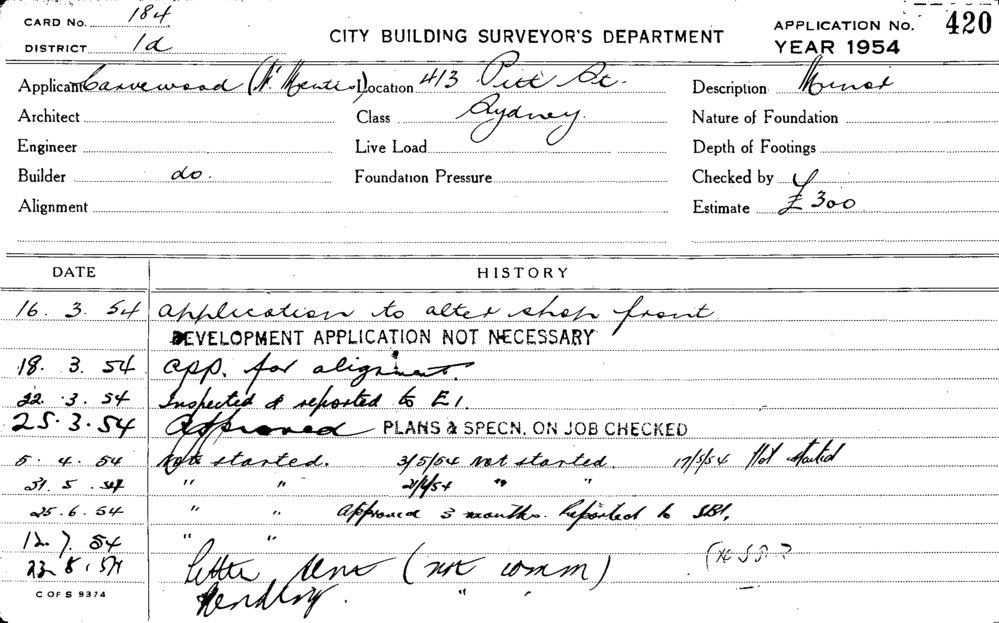 CARD No. 184
DISTRICT 1d
CITY BUILDING SURVEYOR'S DEPARTMENT
APPLICATION No. 420
YEAR 1954
Applicant Location 413 Pitt St. Description Minor
Architect Class Sydney. Nature of Foundation
Engineer Live Load Depth of Footings
Builder do. Foundation Pressure Checked by
Alignment Estimate £300
DATE HISTORY
16. 3. 54 application to alter shop front
DEVELOPMENT APPLICATION NOT NECESSARY
18. 3. 54 app. for alignment.
22. 3. 54 Inspected & reported to E1.
25. 3. 54 Approved PLANS & SPECN. ON JOB CHECKED
5. 4. 54 Not started. 3/5/54 not started. 17/5/54 Not started
31. 5. 54 " " " "
25. 6. 54 " " approved 3 months. Reported to SBI.
12. 7. 54 " "
23. 8. 54 letter sent (not comm)
C OF S 9374 Pending. " "